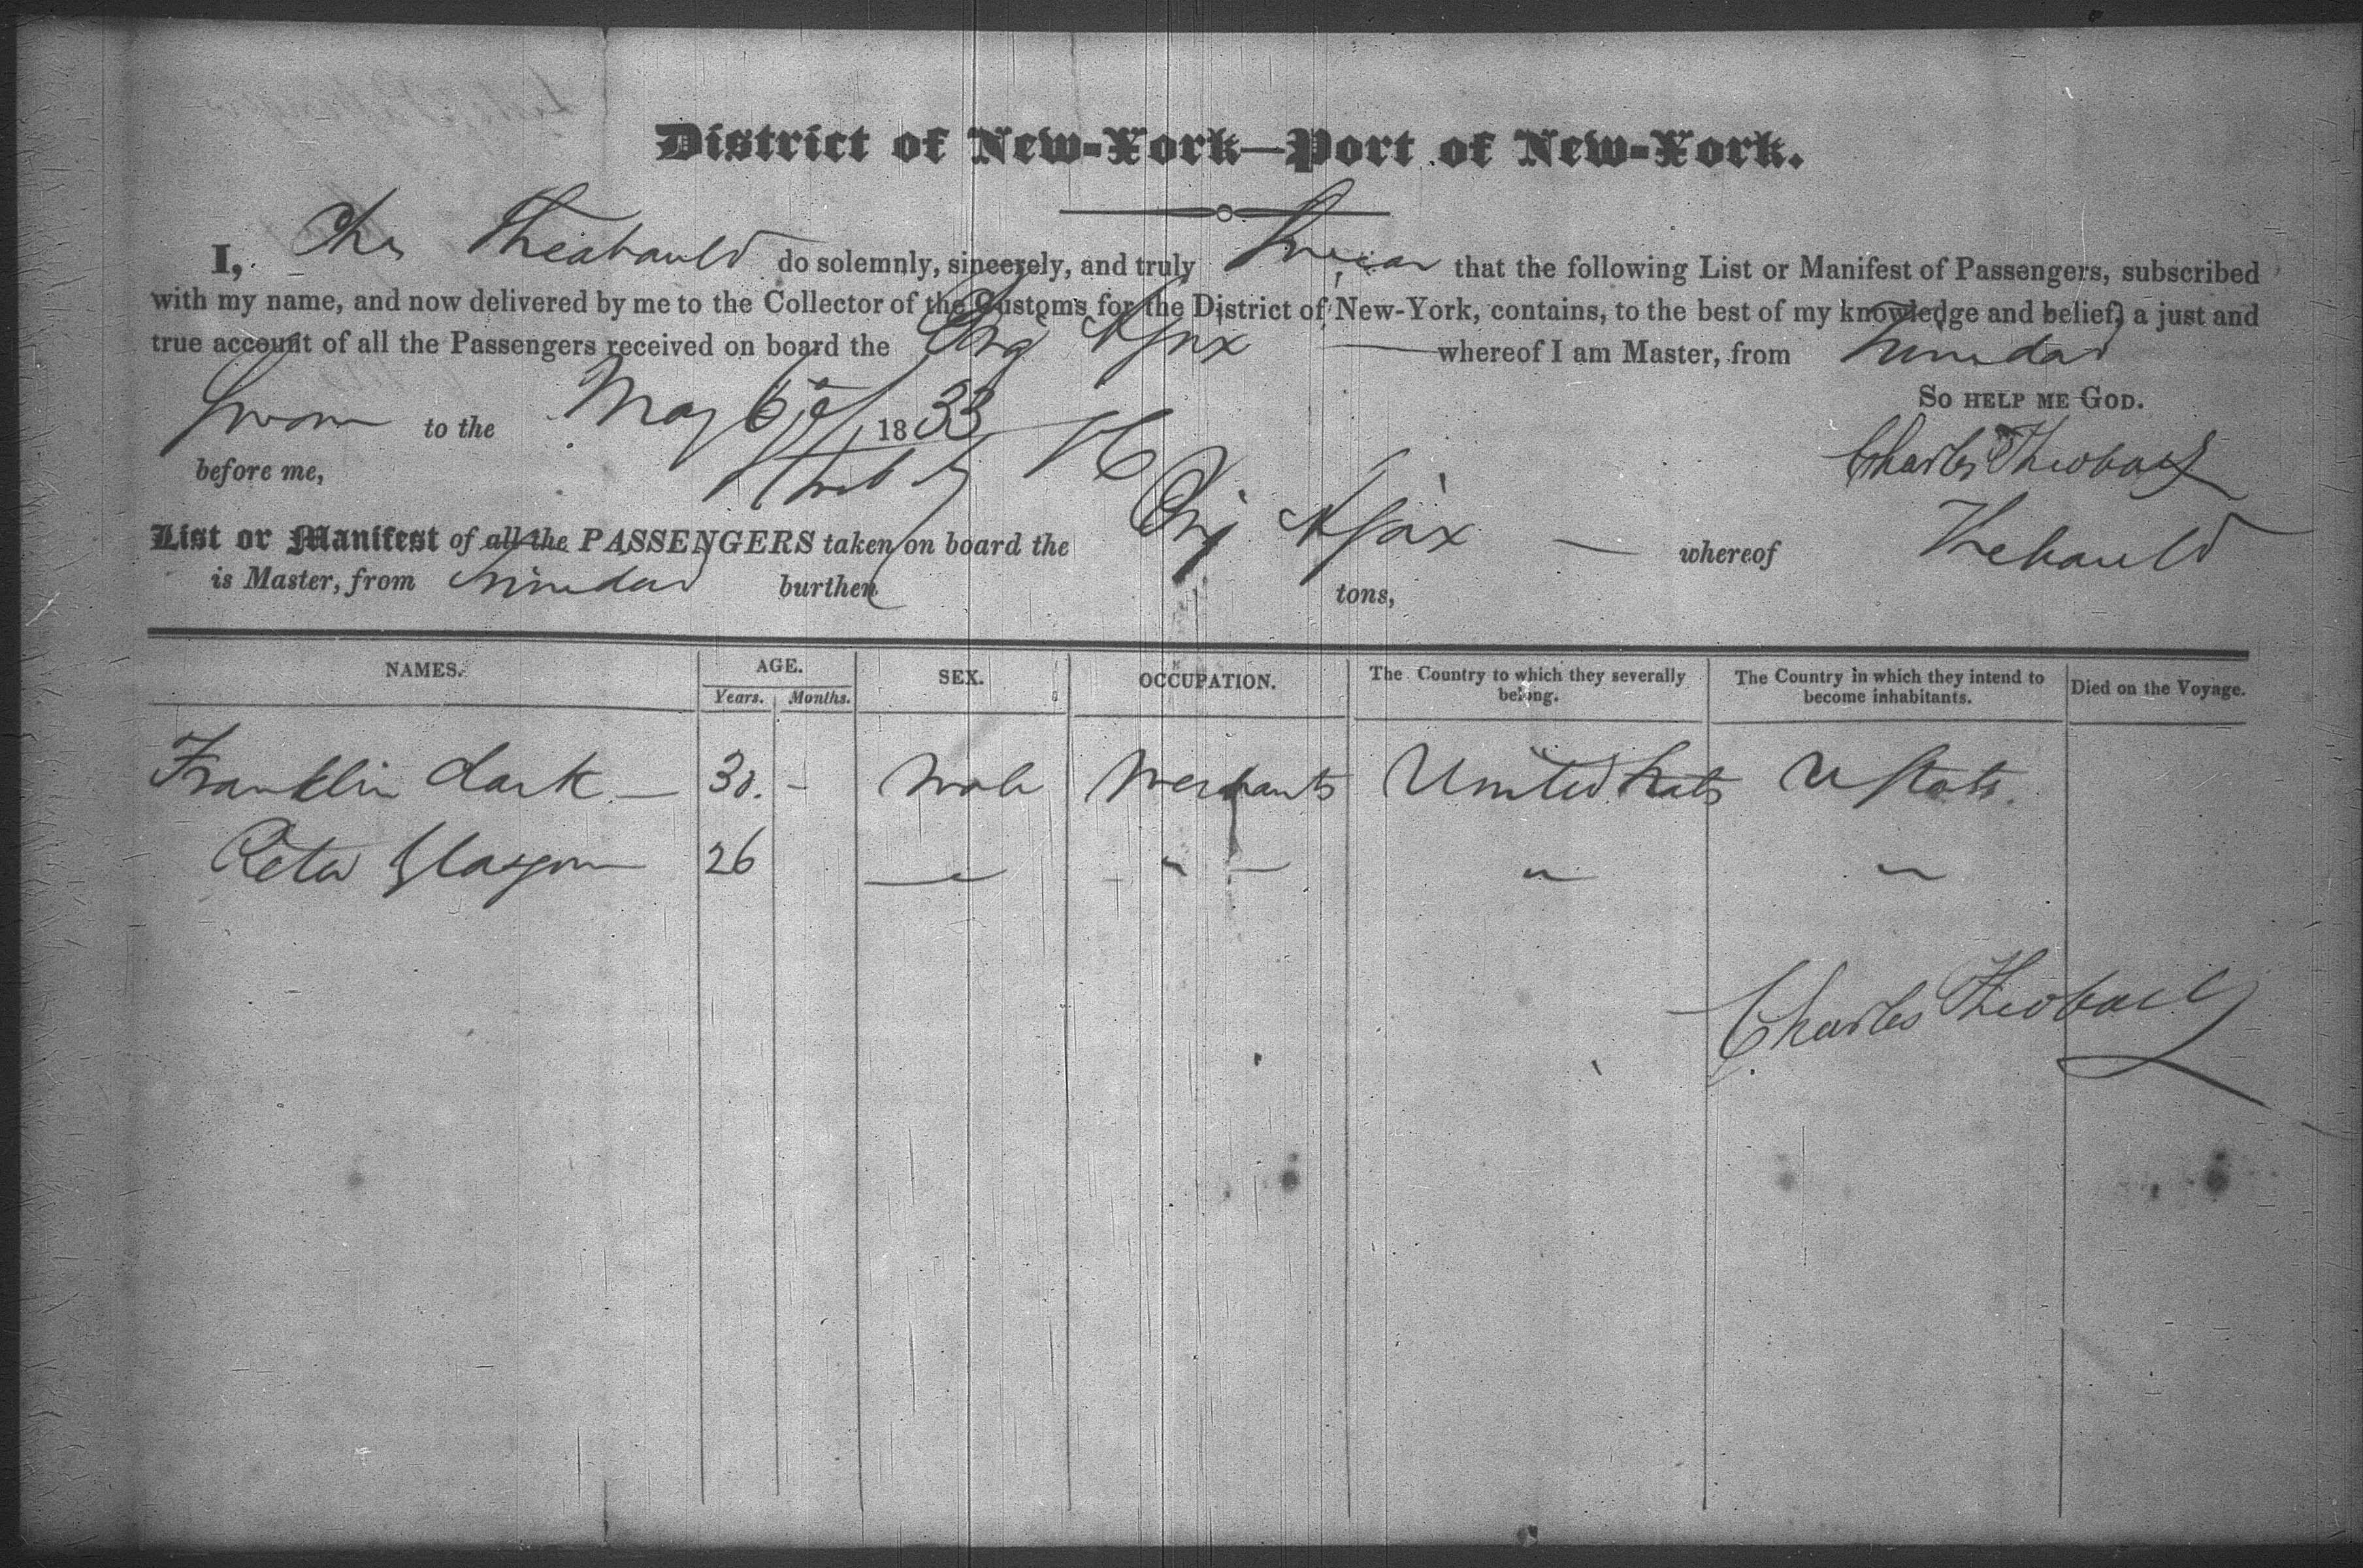 District of New-York—Port of New-York.
I, Chs Theabauld do solemnly, sincerely, and truly Swear that the following List or Manifest of Passengers, subscribed
with my name, and now delivered by me to the Collector of the Customs for the District of New-York, contains, to the best of my knowledge and belief, a just and
true account of all the Passengers received on board the Brig Ajax — whereof I am Master, from Trinidad
So HELP ME GOD.
Sworn to the May 6 1833
before me,
Charles Theobald
List or Manifest of all the PASSENGERS taken on board the Brig Ajax — whereof Thebauld
is Master, from Trinidad burthen tons,
NAMES. AGE. SEX. OCCUPATION. The Country to which they severally belong. The Country in which they intend to become inhabitants. Died on the Voyage.
Years. Months.
Franklin Clark — 30. - Male Merchants United States U States.
Peter Glasgow 26 — " — " "
Charles Theobald